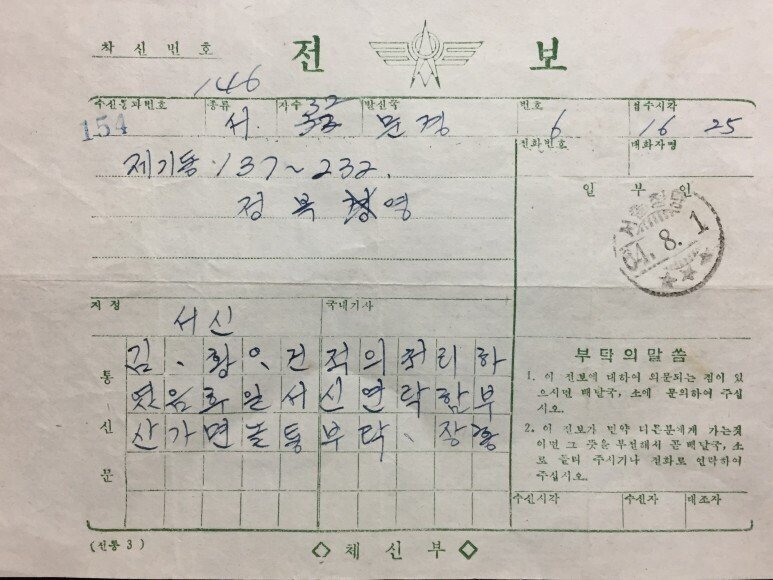 착신번호
전 보
146
수신동과번호 종류 자수 발신국 번호 접수시각
154 서. 32 문경 6 16 25
전화번호 대화자명
제기동.137~232.
정복 영
일부인
64. 8. 1
지정 국내기사
서신
통신문
김、황、건적의처리하
였음화일서신연락함부
산가면 통부탁、장
부탁의말씀
1. 이 전보에 대하여 의문되는 점이 있
으시면 배달국, 소에 문의하여 주십
시오.
2. 이 전보가 만약 다른분에게 가는것
이면 그 뜻을 부전해서 곧 배달국, 소
로 돌려 주시거나 전화로 연락하여
주십시오.
수신시각 수신자 대조자
(전통 3)
체신부